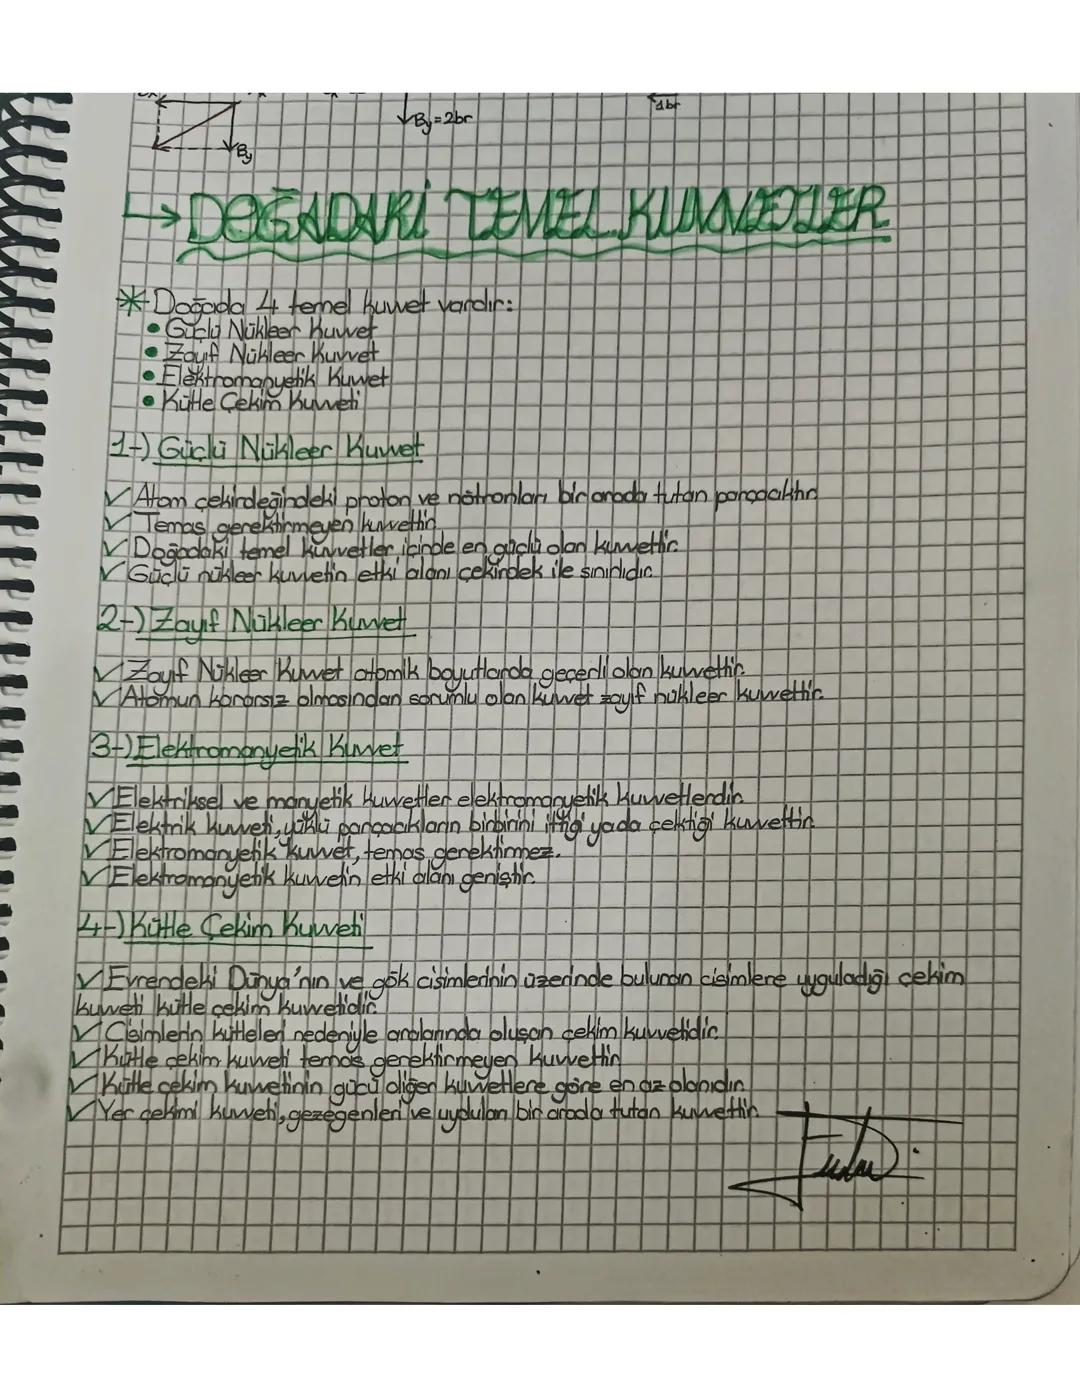 By=2br
1br
By
↳ DOĞADAKİ TEMEL KUVVETLER
* Doğada 4 temel kuvvet vardır:
• Güçlü Nükleer Kuvvet
• Zayıf Nükleer Kuvvet
• Elektromanyetik Kuvvet
• Kütle Çekim Kuvveti
1-) Güçlü Nükleer Kuvvet
✓ Atom çekirdeğindeki proton ve nötronları bir arada tutan parçacıktır.
✓ Temas gerektirmeyen kuvvettir.
✓ Doğadaki temel kuvvetler içinde en güçlü olan kuvvettir.
✓ Güçlü nükleer kuvvetin etki alanı çekirdek ile sınırlıdır.
2-) Zayıf Nükleer Kuvvet
✓ Zayıf Nükleer Kuvvet atomik boyutlarda geçerli olan kuvvettir.
✓ Atomun kararsız olmasından sorumlu olan kuvvet zayıf nükleer kuvvettir.
3-) Elektromanyetik Kuvvet
✓ Elektriksel ve manyetik kuvvetler elektromanyetik kuvvetlerdir.
✓ Elektrik kuvveti, yüklü parçacıkların birbirini ittiği yada çektiği kuvvettir.
✓ Elektromanyetik kuvvet, temas gerektirmez.
✓ Elektromanyetik kuvvetin etki alanı geniştir.
4-) Kütle Çekim Kuvveti
✓ Evrendeki Dünya'nın ve gök cisimlerinin üzerinde bulunan cisimlere uyguladığı çekim
kuvveti kütle çekim kuvvetidir.
✓ Cisimlerin kütleleri nedeniyle aralarında oluşan çekim kuvvetidir.
✓ Kütle çekim kuvveti temas gerektirmeyen kuvvettir.
✓ Kütle çekim kuvvetinin gücü diğer kuvvetlere göre en az olanıdır.
✓ Yer çekimi kuvveti, gezegenleri ve uyduları bir arada tutan kuvvettir.